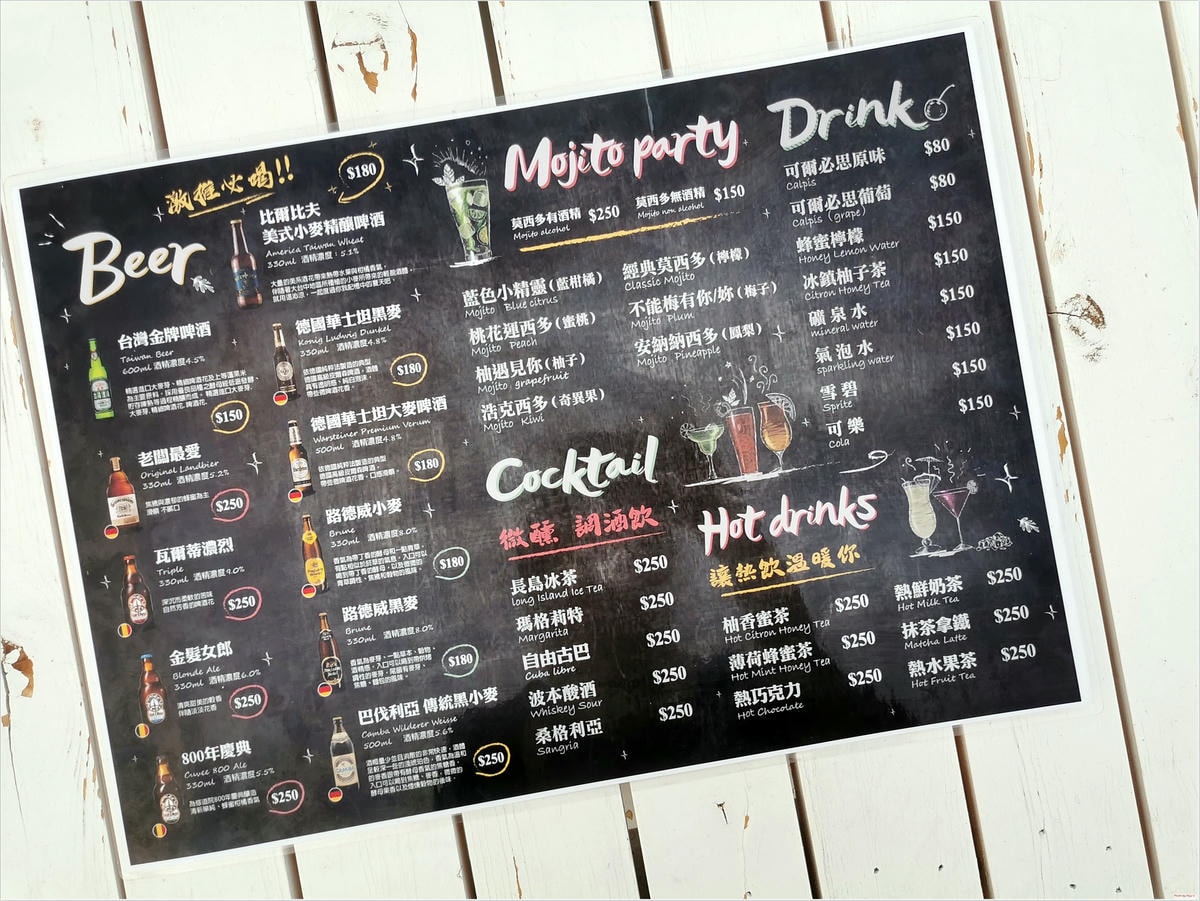 激推必喝!!
$180
比爾比夫
美式小麥精釀啤酒
America Taiwan Wheat
330ml 酒精濃度:5.1%
Beer
台灣金牌啤酒
Taiwan Beer
600ml 酒精濃度4.5%
$150
老闆最愛
Original Landbier
330ml 酒精濃度5.2%
焦糖與濃郁的蜂蜜為主
滑順 不膩口
$250
瓦爾蒂濃烈
Triple
330ml 酒精濃度9.0%
深沉而柔軟的苦味
自然芳香的啤酒花
$250
金髮女郎
Blonde Ale
330ml 酒精濃度6.0%
清爽甜美的穀香
伴隨淡淡花香
$250
800年慶典
Cuvee 800 Ale
330ml 酒精濃度5.5%
為修道院800年慶典釀造
清新單純、蜂蜜柑橘香氣
$250
德國華士坦黑麥
Konig Ludwig Dunkel
330ml 酒精濃度4.8%
$180
德國華士坦大麥啤酒
Warsteiner Premium Verum
500ml 酒精濃度4.8%
$180
路德威小麥
Brune
330ml 酒精濃度8.0%
$180
路德威黑麥
Brune
330ml 酒精濃度8.0%
$180
巴伐利亞 傳統黑小麥
Camba Wilderer Weisse
500ml 酒精濃度5.6%
$250
Mojito party
莫西多有酒精 $250
Mojito alcohol
莫西多無酒精 $150
Mojito non alcohol
藍色小精靈(藍柑橘)
Mojito Blue citrus
桃花運西多(蜜桃)
Mojito Peach
柚遇見你(柚子)
Mojito grapefruit
浩克西多(奇異果)
Mojito Kiwi
經典莫西多(檸檬)
Classic Mojito
不能梅有你/妳(梅子)
Mojito Plum
安納納西多(鳳梨)
Mojito Pineapple
Cocktail
微醺 調酒飲
長島冰茶 $250
long Island Ice Tea
瑪格莉特 $250
Margarita
自由古巴 $250
Cuba libre
波本酸酒 $250
Whiskey Sour
桑格利亞 $250
Sangria
Drink
可爾必思原味 $80
Calpis
可爾必思葡萄 $80
Calpis (grape)
蜂蜜檸檬 $150
Honey Lemon Water
冰鎮柚子茶 $150
Citron Honey Tea
礦泉水 $150
mineral water
氣泡水 $150
sparkling water
雪碧 $150
Sprite
可樂 $150
Cola
Hot drinks
讓熱飲溫暖你
柚香蜜茶 $250
Hot Citron Honey Tea
薄荷蜂蜜茶 $250
Hot Mint Honey Tea
熱巧克力 $250
Hot Chocolate
熱鮮奶茶 $250
Hot Milk Tea
抹茶拿鐵 $250
Matcha Latte
熱水果茶 $250
Hot Fruit Tea